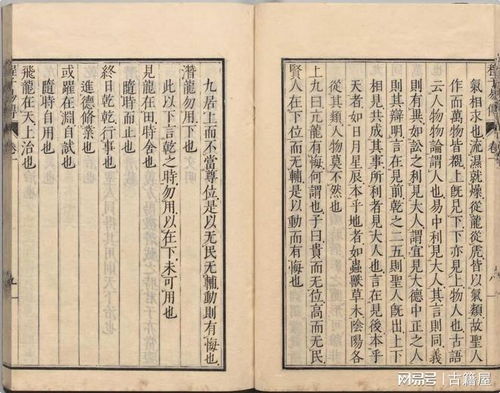 氣相求也流濕就燥從龍從虎皆以氣類故聖人
作而萬物皆覩上旣見下下亦見上物人也古語
云人物物論謂人也易中利見大人其言則同義
則有異如訟之利見大人謂宜見大德中正之人
則其辯明言在見前乾之二五則聖人旣出上下
相見共成其事所利者見大人也言在見後本乎
天者如日月星辰本乎地者如蟲獸草木陰陽各
從其類人物莫不然也
上九曰亢龍有悔何謂也子曰貴而无位高而无民
賢人在下位而无輔是以動而有悔也
九居上而不當尊位是以无民无輔動則有悔也
潛龍勿用下也
此以下言乾之時勿用以在下未可用也
見龍在田時舍也
隨時而止也
終日乾乾行事也
進德脩業也
或躍在淵自試也
隨時自用也
飛龍在天上治也
网易号 | 古籍屋